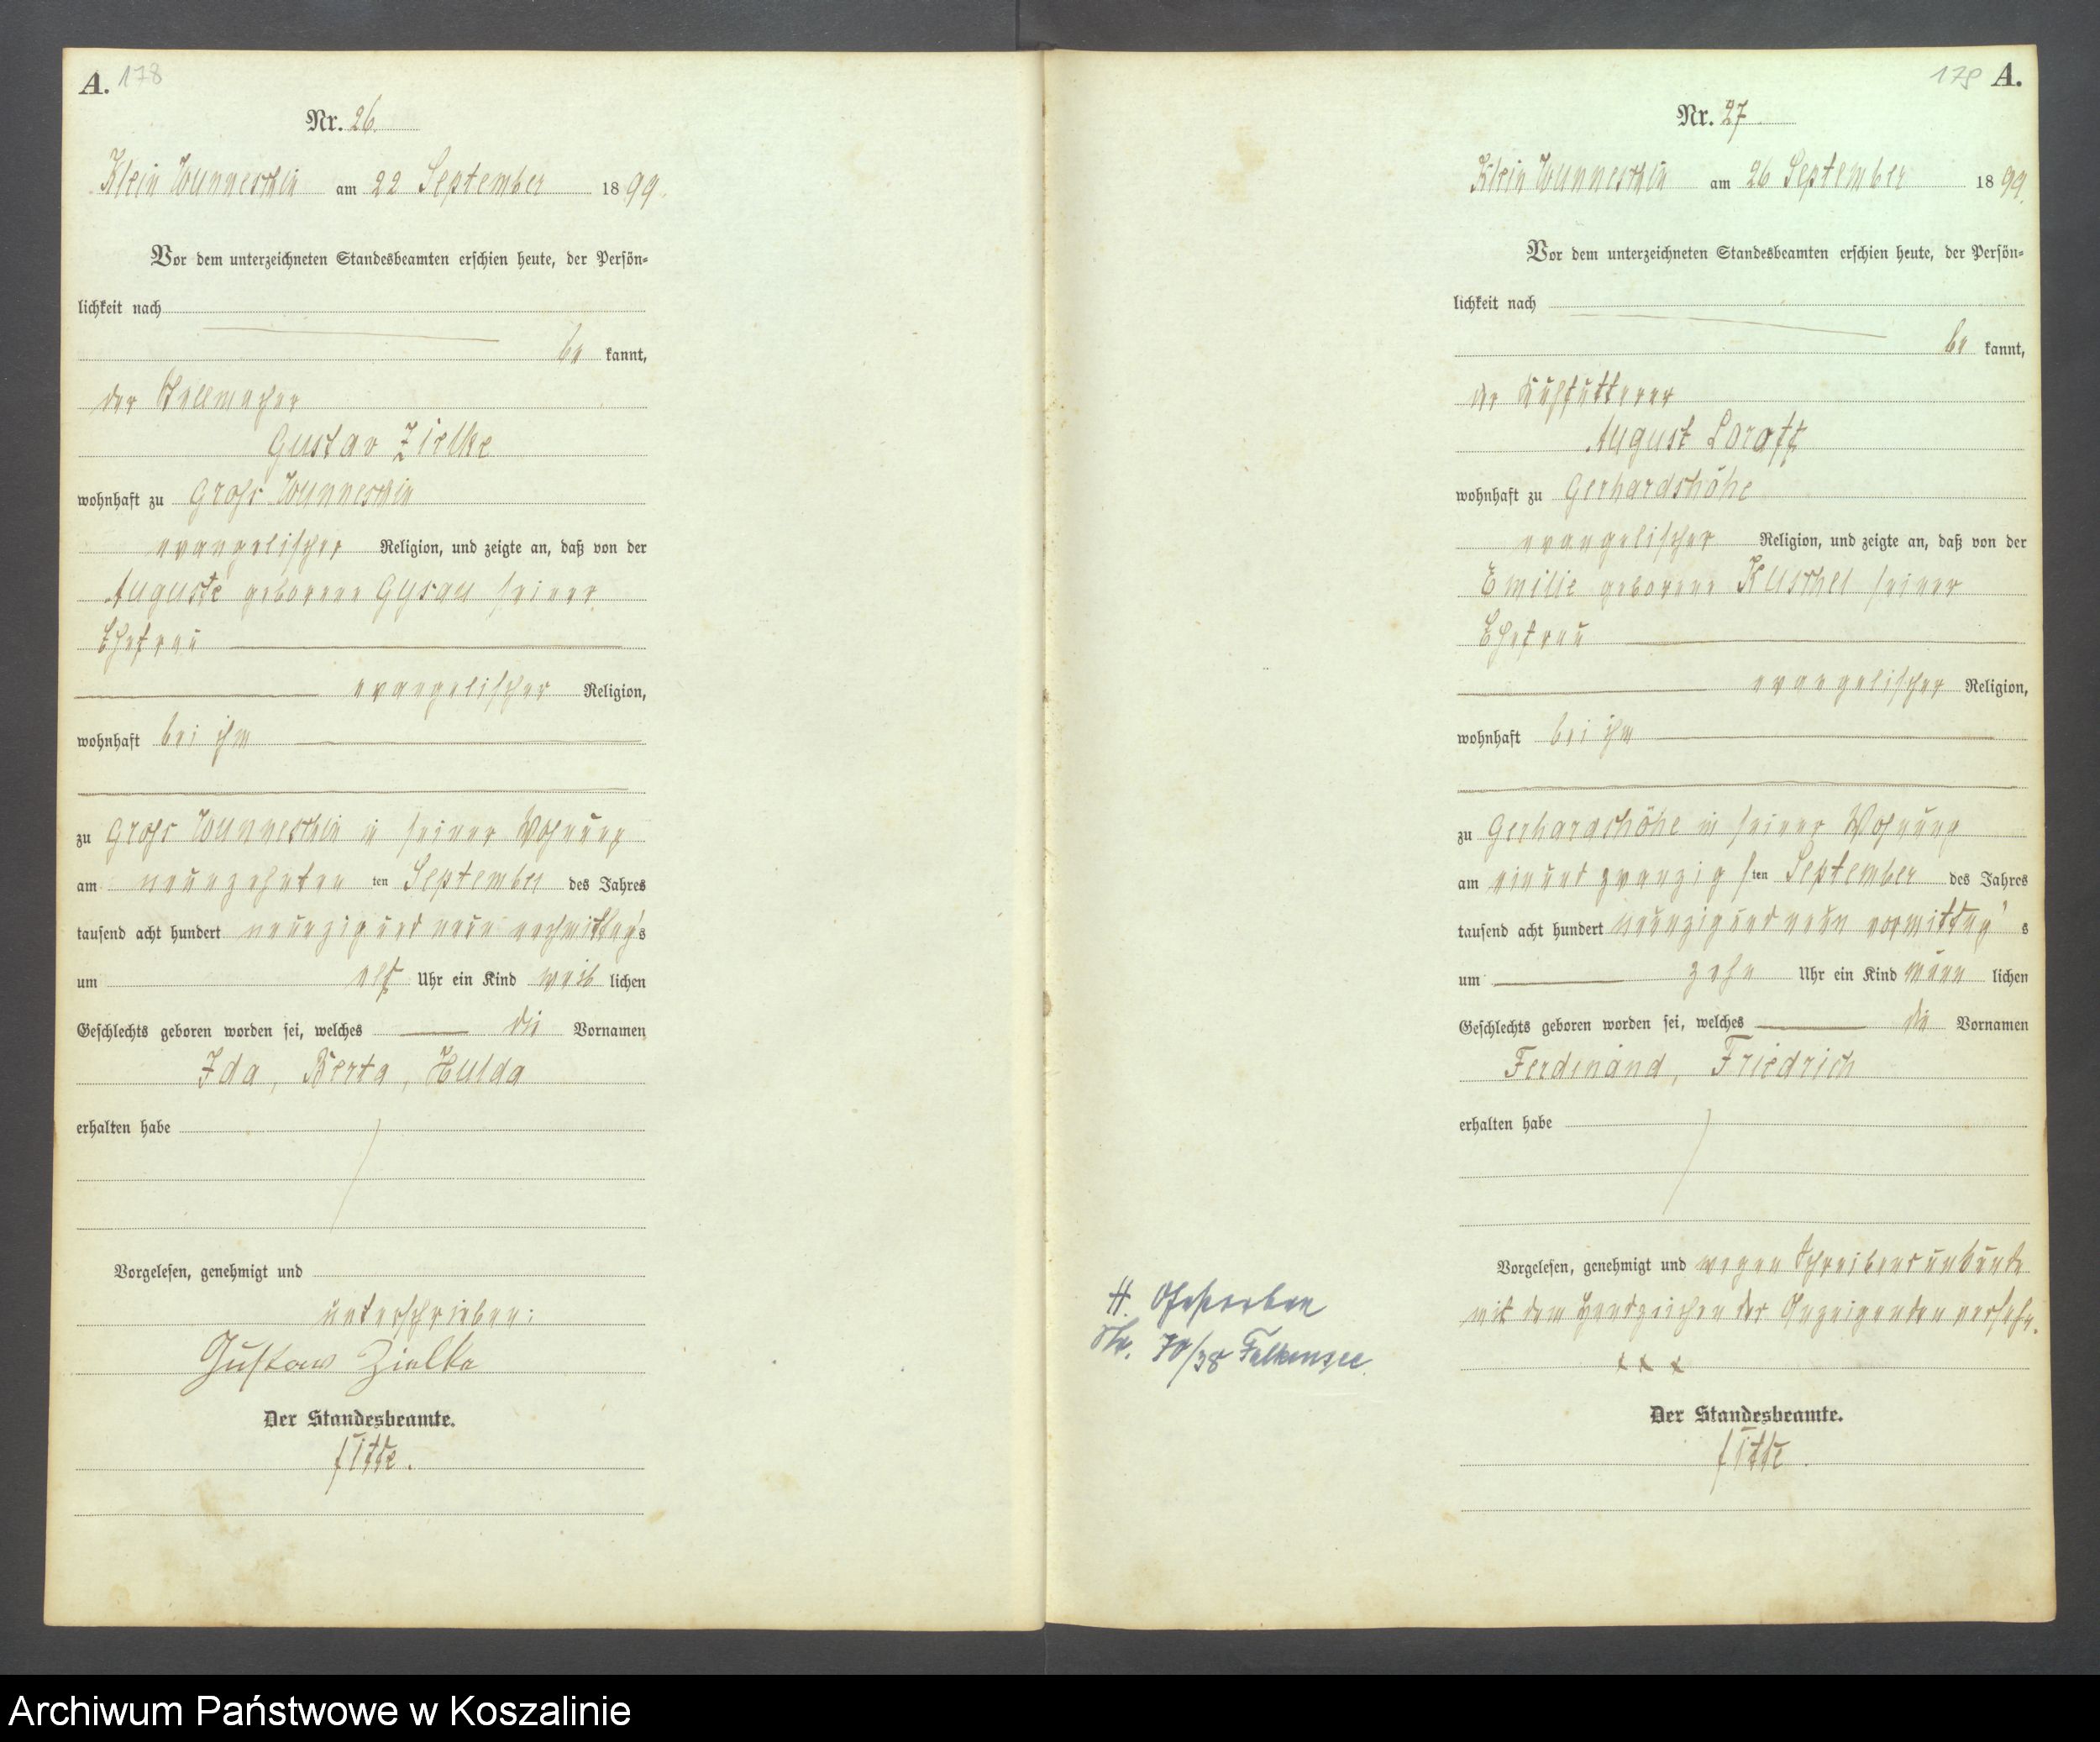 A. 178
Nr. 26.
Klein Wunneschin am 22 September 1899.
Vor dem unterzeichneten Standesbeamten erschien heute, der Persön-
lichkeit nach
be kannt,
der Stellmacher
Gustav Zielke
wohnhaft zu Groß Wunneschin
evangelischer Religion, und zeigte an, daß von der
Auguste geborene Gysau seiner
Ehefrau
evangelischer Religion,
wohnhaft bei ihm
zu Groß Wunneschin in seiner Wohnung
am neunzehnten ten September des Jahres
tausend acht hundert neunzig und neun nachmittags
um elf Uhr ein Kind weib lichen
Geschlechts geboren worden sei, welches die Vornamen
Ida, Berta, Hulda
erhalten habe
Vorgelesen, genehmigt und
unterschrieben:
Gustav Zielke
Der Standesbeamte.
179 A.
Nr. 27.
Klein Wunneschin am 26 September 1899.
Vor dem unterzeichneten Standesbeamten erschien heute, der Persön-
lichkeit nach
be kannt,
der Kuhfütterer
August
wohnhaft zu Gerhardshöhe
evangelischer Religion, und zeigte an, daß von der
Emilie geborene Kuschel seiner
Ehefrau
evangelischer Religion,
wohnhaft bei ihm
zu Gerhardshöhe in seiner Wohnung
am einundzwanzig sten September des Jahres
tausend acht hundert neunzig und neun vormittags
um zehn Uhr ein Kind männ lichen
Geschlechts geboren worden sei, welches die Vornamen
Ferdinand, Friedrich
erhalten habe
Vorgelesen, genehmigt und wegen Schreibensunkunde
mit dem Handzeichen des Anzeigenden versehn.
x x x
Der Standesbeamte.
H. Gestorben
Nr. 70/38 Falkensee.
Archiwum Państwowe w Koszalinie